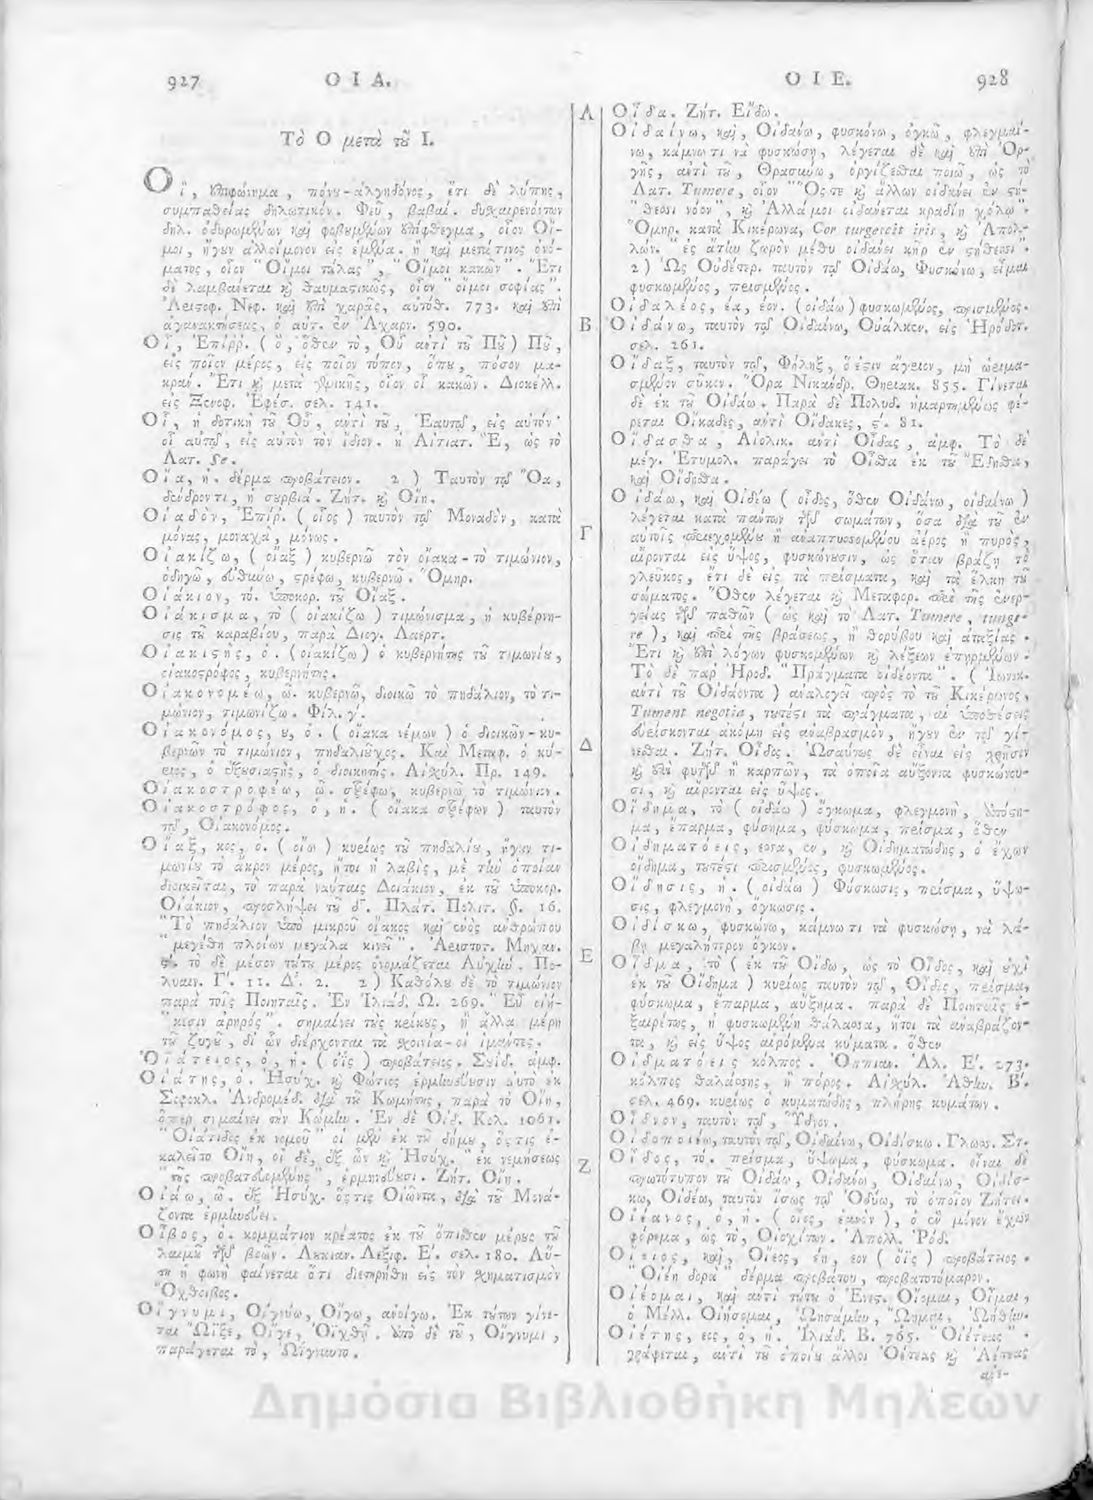 927 Ο Ι Α.
Τὸ Ο μετὰ τοῦ Ι.
Οἴ, ἐπιφώνημα, πόνου-ἀλγηδόνος, ἔτι δὲ λύπης,
συμπαθείας δηλωτικόν. Φεῦ, βαβαί. δυσχαιρενόντων
δηλ. ὀδυρωμένων καὶ φοβουμένων ἐπίφθεγμα, οἷον Οἴ-
μοι, ἤγουν ἀλλοίμονον εἰς ἐμένα. ἢ καὶ μετά τινος ὀνό-
ματος, οἷον "Οἴμοι τάλας", "Οἴμοι κακῶν". Ἔτι
δὲ λαμβάνεται καὶ θαυμαστικῶς, οἷον "οἴμοι σοφίας".
Ἀριστοφ. Νεφ. καὶ ἐπὶ χαρᾶς, αὐτόθ. 773. καὶ ἐπὶ
ἀγανακτήσεως, ὁ αὐτ. ἐν Ἀχαρν. 590.
Οἷ, Ἐπίρρ. ( ὅ, ὅθεν τὸ, Οὗ αντὶ τοῦ Ποῦ) Ποῦ,
εἰς ποῖον μέρος, εἰς ποῖον τόπον, ὅπου, πόσον μα-
κράν. Ἔτι καὶ μετὰ γενικῆς, οἷον οἷ κακῶν. Διοκέλλ.
εἰς Ξενοφ. Ἐφέσ. σελ. 141.
Οἷ, ἡ δοτικὴ τοῦ Οὗ, ἀντὶ τοῦ, Ἑαυτῷ, εἰς αὐτόν·
οἷ αὐτῷ, εἰς αὐτὸν τὸν ἴδιον. ἡ Αἰτιατ. Ἓ, ὡς τὸ
Λατ. Se.
Οἴα, ἡ. δέρμα προβάτειον. 2 ) Ταυτὸν τῷ Ὄα,
δένδρον τι, ἡ σουρβιά. Ζήτ. καὶ Οἴη.
Οἰαδὸν, Ἐπίρ. ( οἶος ) ταυτὸν τῷ Μοναδὸν, κατὰ
μόνας, μοναχά, μόνως.
Οἰακίζω, ( οἴαξ ) κυβερνῶ τὸν οἴακα-τὸ τιμόνιον,
ὁδηγῶ, εὐθύνω, στρέφω, κυβερνῶ. Ὅμηρ.
Οἰάκιον, τό. ὑποκορ. τοῦ Οἴαξ.
Οἰάκισμα, τὸ ( οἰακίζω ) τιμώνισμα, ἡ κυβέρνη-
σις τοῦ καραβίου, παρὰ Διογ. Λαερτ.
Οἰακιστὴς, ὁ. (οἰακίζω) ὁ κυβερνήτης τοῦ τιμωνίου,
οἰακοστρόφος, κυβερνήτης.
Οἰακονομέω, ῶ. κυβερνῶ, διοικῶ τὸ πηδάλιον, τὸ τι-
μώνιον, τιμωνίζω. Φίλ. γ'.
Οἰακονόμος, ου, ὁ. ( οἴακα νέμων ) ὁ διοικῶν-κυ-
βερνῶν τὸ τιμώνιον, πηδαλιοῦχος. Καὶ Μεταφ. ὁ κύ-
ριος, ὁ ἐξουσιαστὴς, ὁ διοικητής. Αἰσχύλ. Πρ. 149.
Οἰακοστροφέω, ῶ. στρέφω, κυβερνῶ τὸ τιμώνιον.
Οἰακοστρόφος, ὁ, ἡ. ( οἴακα στρέφων ) ταυτὸν
τῷ, Οἰακονόμος.
Οἴαξ, κος, ὁ. ( οἴω ) κυρίως τοῦ πηδαλίου, ἤγουν τι-
μωνίου τὸ ἄκρον μέρος, ἤτοι ἡ λαβὶς, μὲ τὴν ὁποίαν
διοικεῖται, τὸ παρὰ ναύταις Δοιάκιον, ἐκ τοῦ ὑποκορ.
Οἰάκιον, προσλήψει τοῦ δ'. Πλάτ. Πολιτ. §. 16.
"Τὸ πηδάλιον ὑπὸ μικροῦ οἴακος καὶ ἑνὸς ἀνθρώπου
"μεγέθη πλοίων μεγάλα κινεῖ". Ἀριστοτ. Μηχαν.
τὸ δὲ μέσον τούτου μέρος ὀνομάζεται Αὐχήν. Πο-
λυαιν. Γ'. 11. Δ'. 2. 2 ) Καθόλου δὲ τὸ τιμώνιον
παρὰ τοῖς Ποιηταῖς. Ἐν Ἰλιάδ. Ω. 269. "Εὖ οἰή-
"κεσιν ἀρηρός". σημαίνει τοὺς κρίκους, ἢ ἄλλα μέρη
τοῦ ζυγοῦ, δι' ὧν διέρχονται τὰ σχοινία-οἱ ἱμάντες.
Οἰάτειος, ὁ, ἡ. ( οἶς ) προβάτειος. Σουίδ. ἀμφ.
Οἰάτης, ὁ. Ἡσύχ. καὶ Φώτιος ἑρμηνεύουσιν αὐτὸ ἐκ
Σοφοκλ. Ἀνδρομέδ. διὰ τοῦ Κωμήτης, παρὰ τὸ Οἴη,
ὅπερ σημαίνει τὴν Κώμην. Ἐν δὲ Οἰδ. Κολ. 1061.
"Οἰάτιδος ἐκ νομοῦ" οἱ μὲν ἐκ τοῦ δήμου, ὅστις ἐ-
καλεῖτο Οἴη, οἱ δέ, ἐξ ὧν καὶ Ἡσύχ. "ἐκ νεμήσεως
"τῆς προβατευομένης", ἑρμηνεύουσι. Ζήτ. Οἴη.
Οἰάω, ῶ. ἐξ Ἡσύχ. ὅστις Οἰῶντα, διὰ τοῦ Μονά-
ζοντα ἑρμηνεύει.
Οἶβος, ὁ. κομμάτιον κρέατος ἐκ τοῦ ὄπισθεν μέρους τοῦ
λαιμοῦ τῶν βοῶν. Λουκιαν. Λεξιφ. Ε'. σελ. 180. Αὕ-
τη ἡ φωνὴ φαίνεται ὅτι διετηρήθη εἰς τὸν σχηματισμὸν
Ὄχθοιβος.
Οἴγνυμι, Οἰγνύω, Οἴγω, ἀνοίγω. Ἐκ τούτων γίνε-
ται Ὤϊξε, Οἶγε, Οἴχθη. ἀπὸ δὲ τοῦ, Οἴγνυμι,
παράγεται τὸ, Ὠΐγνυντο.
Ο Ι Ε. 928
Οἶδα. Ζήτ. Εἴδω.
Οἰδαίνω, καὶ, Οἰδάνω, φυσκόνω, ὀγκῶ, φλεγμαί-
νω, κάμνω τι νὰ φυσκώσῃ, λέγεται δὲ καὶ ἐπὶ Ὀρ-
γῆς, ἀντὶ τοῦ, Θρασύνω, ὀργίζεσθαι ποιῶ, ὡς τὸ
Λατ. Tumere, οἷον "Ὅς τε καὶ ἄλλων οἰδάνει ἐν στή-
"θεσσι νόον", καὶ "Ἀλλά μοι οἰδάνεται κραδίη χόλῳ".
Ὅμηρ. κατὰ Κικέρωνα, Cor turgescit iris, καὶ Ἀπολ-
λών. "ἐς ἄτην ζωρὸν μέθυ οἰδάνει κῆρ ἐν στήθεσσι".
2 ) Ὡς Οὐδέτερ. ταυτὸν τῷ Οἰδάω, Φυσκόνω, εἶμαι
φυσκωμένος, πρισμένος.
Οἰδαλέος, έα, έον. (οἰδάω) φυσκωμένος, πρισμένος.
Οἰδάνω, ταυτὸν τῷ Οἰδαίνω, Οὐάλκεν. εἰς Ἡρόδοτ.
σελ. 261.
Οἴδαξ, ταυτὸν τῷ, Φήληξ, ὅ ἐστιν ἄγριον, μὴ ὡριμα-
σμένον σῦκον. Ὅρα Νικάνδρ. Θηριακ. 855. Γίνεται
δὲ ἐκ τοῦ Οἰδάω. Παρὰ δὲ Πολυδ. ἡμαρτημένως φέ-
ρεται Οἴκαδες, ἀντὶ Οἴδακες, ϛ'. 81.
Οἴδασθα, Αἰολικ. ἀντὶ Οἶδας, ἀμφ. Τὸ δὲ
μέγ. Ἐτυμολ. παράγει τὸ Οἶσθα ἐκ τοῦ Ἔδησθα,
καὶ Οἴδησθα.
Οἰδάω, καὶ Οἰδέω ( οἶδος, ὅθεν Οἰδάνω, οἰδαίνω )
λέγεται κατὰ πάντων τῶν σωμάτων, ὅσα διὰ τοῦ ἐν
αὐτοῖς περιεχομένου ἢ ἀναπτυσσομένου ἀέρος ἢ πυρὸς,
αἴρονται εἰς ὕψος, φυσκώνουσιν, ὡς ὅταν βράζῃ τὸ
γλεῦκος, ἔτι δὲ εἰς τὰ πρίσματα, καὶ τὰ ἕλκη τοῦ
σώματος. Ὅθεν λέγεται καὶ Μεταφορ. περὶ τῆς ἐνερ-
γείας τῶν παθῶν ( ὡς καὶ τὸ Λατ. Tumere, turge-
re ), καὶ περὶ τῆς βράσεως, ἢ θορύβου καὶ ἀταξίας.
Ἔτι καὶ ἐπὶ λόγων φυσκωμένων καὶ λέξεων ἐπῃρμένων.
Τὸ δὲ παρ' Ἡροδ. "Πράγματα οἰδέοντα". ( Ἰωνικ.
ἀντὶ τοῦ Οἰδάοντα ) ἀναλογεῖ πρὸς τὸ τοῦ Κικέρωνος,
Tument negotia, τουτέστι τὰ πράγματα, αἱ ὑποθέσεις
εὑρίσκονται ἀκόμη εἰς ἀναβρασμόν, ἤγουν ἐν τῷ γί-
νεσθαι. Ζήτ. Οἶδος. Ὡσαύτως δὲ εἶναι εἰς χρῆσιν
καὶ ἐπὶ φυτῶν ἢ καρπῶν, τὰ ὁποῖα αὐξάνοντα φυσκώνου-
σι, καὶ αἴρονται εἰς ὕψος.
Οἴδημα, τὸ ( οἰδάω ) ὄγκωμα, φλεγμονὴ, ἀπόστη-
μα, ἔπαρμα, φύσημα, φύσκωμα, πρίσμα, ὅθεν
Οἰδηματόεις, εσσα, εν, καὶ Οἰδηματώδης, ὁ ἔχων
οἴδημα, τουτέστι πρισμένος, φυσκωμένος.
Οἴδησις, ἡ. ( οἰδάω ) Φύσκωσις, πρίσμα, ὕψω-
σις, φλεγμονὴ, ὄγκωσις.
Οἰδίσκω, φυσκώνω, κάμνω τι νὰ φυσκώσῃ, νὰ λά-
βῃ μεγαλήτερον ὄγκον.
Οἶδμα, τὸ ( ἐκ τοῦ Οἴδω, ὡς τὸ Οἶδος, καὶ οὐχὶ
ἐκ τοῦ Οἴδημα ) κυρίως ταυτὸν τῷ, Οἶδος, πρίσμα,
φύσκωμα, ἔπαρμα, αὔξημα. παρὰ δὲ Ποιηταῖς ἐ-
ξαιρέτως, ἡ φυσκωμένη θάλασσα, ἤτοι τὰ ἀναβράζον-
τα, καὶ εἰς ὕψος αἰρόμενα κύματα. ὅθεν
Οἰδματόεις κόλπος. Ὀππιαν. Ἁλ. Ε'. 273.
κόλπος θαλάσσης, ἢ πόρος. Αἰσχύλ. Ἀθήν. Β'.
σελ. 469. κυρίως ὁ κυματώδης, πλήρης κυμάτων.
Οἶδνον, ταυτὸν τῷ, Ὕδνον.
Οἰδοποιέω, ταυτὸν τῷ, Οἰδαίνω, Οἰδίσκω. Γλωσσ. Στ.
Οἶδος, τό. πρίσμα, ὕψωμα, φύσκωμα. εἶναι δὲ
πρωτότυπον τοῦ Οἰδάω, Οἰδάνω, Οἰδαίνω, Οἰδίσ-
κω, Οἰδέω, ταυτὸν ἴσως τῷ Ὀδύω, τὸ ὁποῖον Ζήτει.
Οἰέανος, ὁ, ἡ. ( οἶος, ἑανὸν ), ὁ ἓν μόνον ἔχων
φόρεμα, ὡς τὸ, Οἰοχίτων. Ἀπολλ. Ῥόδ.
Οἴειος, καὶ, Οἴεος, έη, εον ( οἶς ) προβάτειος.
"Οἰέη δορά" δέρμα προβάτου, προβατοτόμαρον.
Οἰέομαι, καὶ ἀντὶ τούτου ὁ Ἐνεστ. Οἴομαι, Οἶμαι,
ὁ Μέλλ. Οἰήσομαι, Ὠησάμην, Ὤημαι, Ὠήθην.
Οἰέτης, εος, ὁ, ἡ. Ἰλιάδ. Β. 765. "Οἰέτεας".
γράφεται, ἀντὶ τοῦ ὁποίου ἄλλοι Ὀέτεας καὶ Ἀέτεας
Α
Β
Γ
Δ
Ε
Ζ
Δημόσια Βιβλιοθήκη Μηλεών